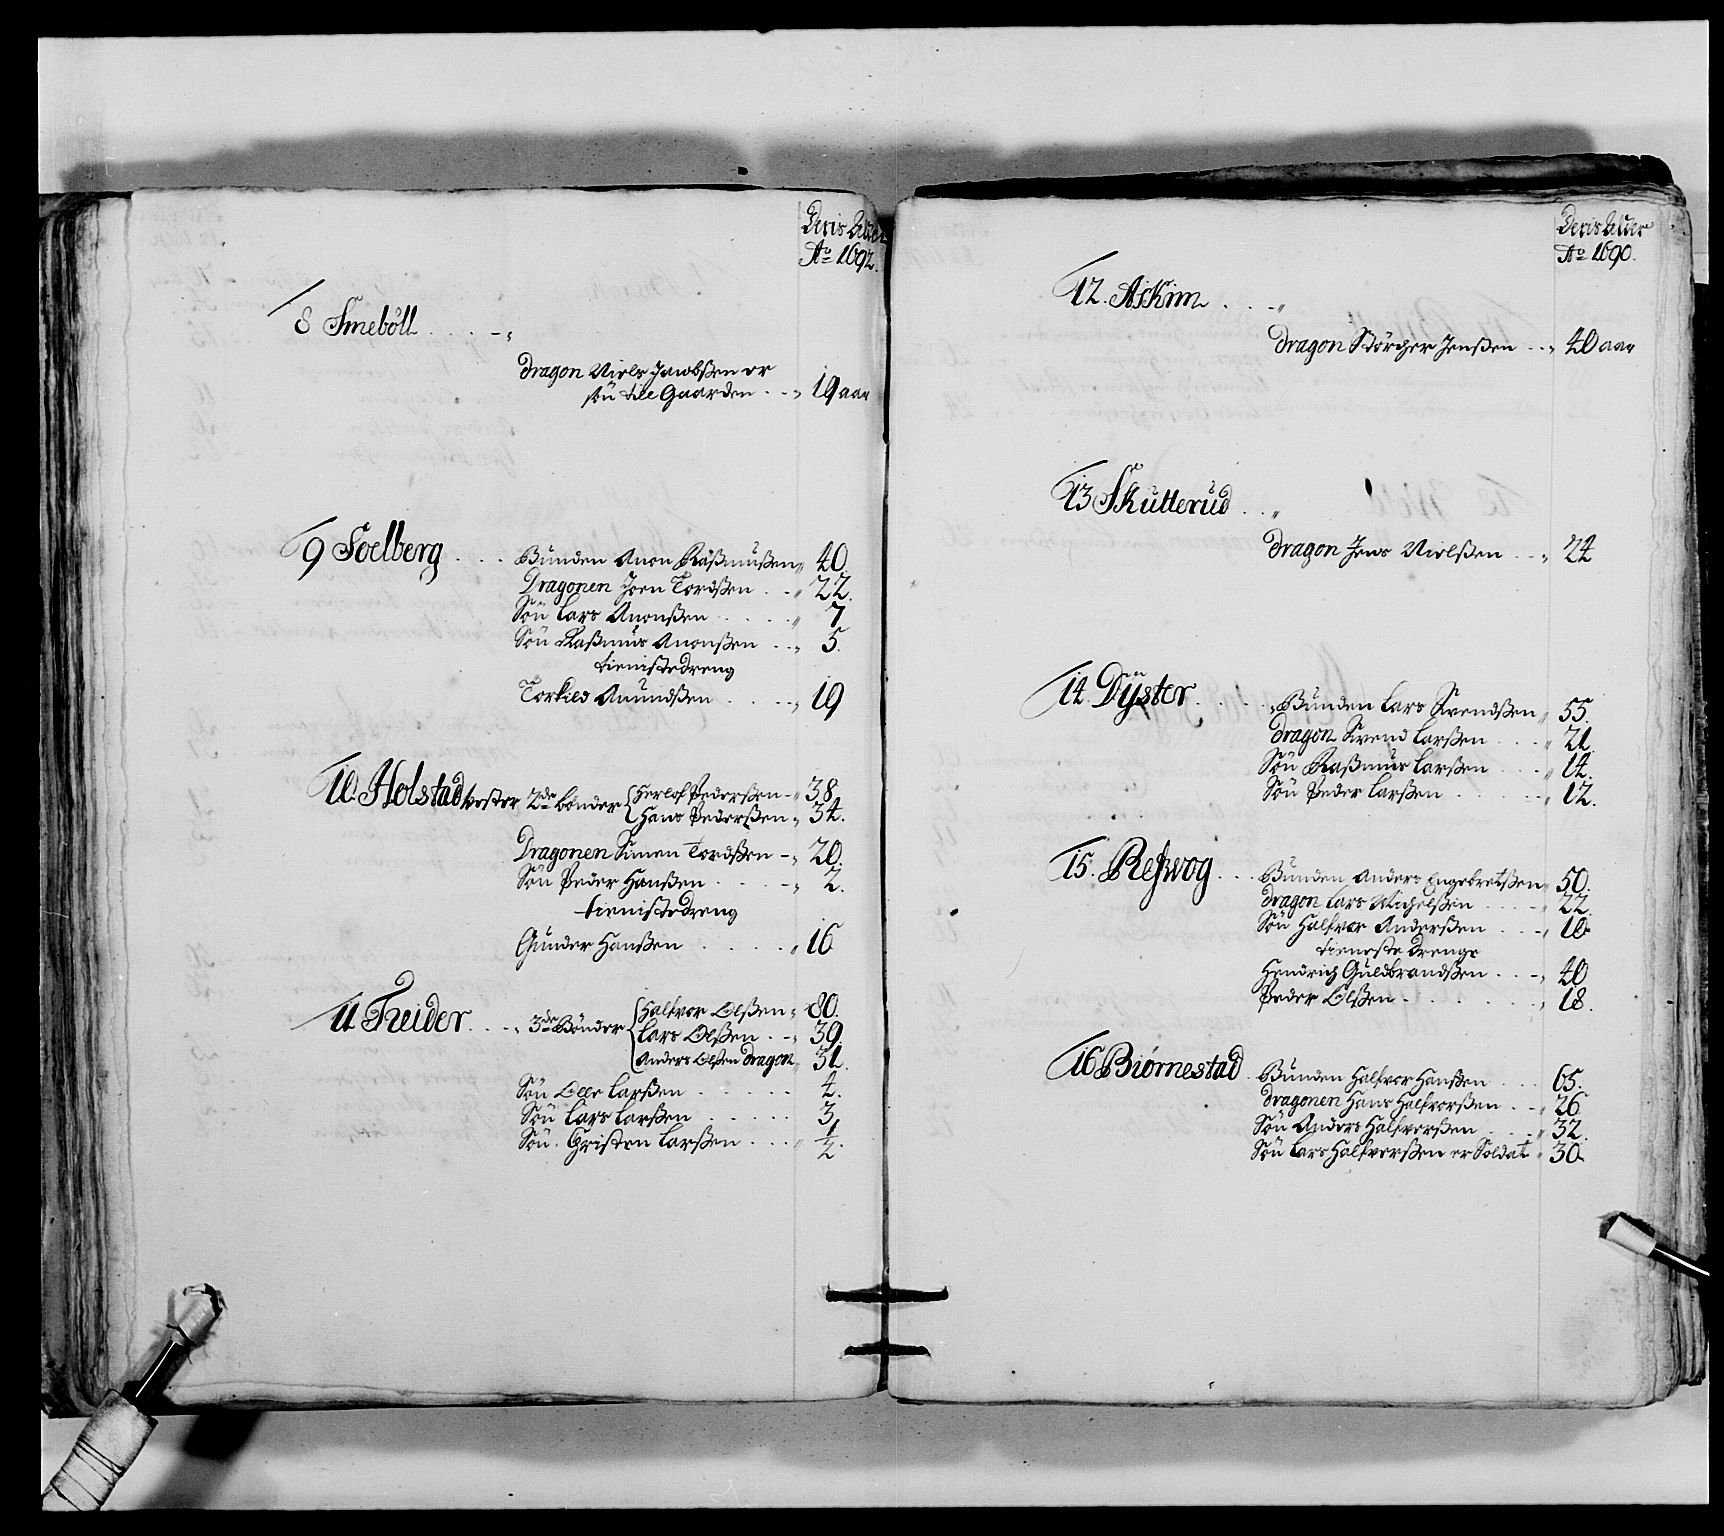 Deris Alder
Ao 1692.
8 Smeböll
Dragon Niels Jacobßen er
sön till Gaarden 19 aar
9 Soelberg Bunden Anon Raßmußen 40.
Dragonen Joen Tordßen 22.
Sön Lars Anonßen 7
Sön Raßmus Anonßen 5.
tienistedreng
Torkied Amundßen 19
10. Holstad vester 2de bönder Herlof Pederßen 38.
Hans Pederßen 34.
Dragonen Simen Tordßen 20.
Sön Peder Hanßen 2.
tienistedreng
Gunder Hanßen 16
11 Treider 3de Bönder Halfvor Olßen 80.
Lars Olßen 39.
Anders Olßen dragon 31.
Sön Olle Larßen 4.
Sön Lars Larßen 3
Sön Christen Larßen 1/2.
Deris Alder
Ao 1690.
12. Askim
Dragon Störcher Jenßen 40 aar
13 Skutterud
Dragon Jens Nielßen 24
14 Dÿster Bunden Lars Svendßen 55.
Dragon Svend Larßen 21.
Sön Raßmus Larßen 14.
Sön Peder Larßen 12.
15. Reßvog Bunden Anders Engebretßen 50.
dragon Lars Michelßen 22.
Sön Halfvor Anderßen 10.
tieneste Drenge
Hendrich Guldbrandßen 40
Peder Olßen 18.
16 Biörnestad Bunden Halfvor Hanßen 65.
dragonen Hans Halfvorßen 26
Sön Anders Halfvorßen 32.
Sön Lars Halfvorßen er Soldat 30.